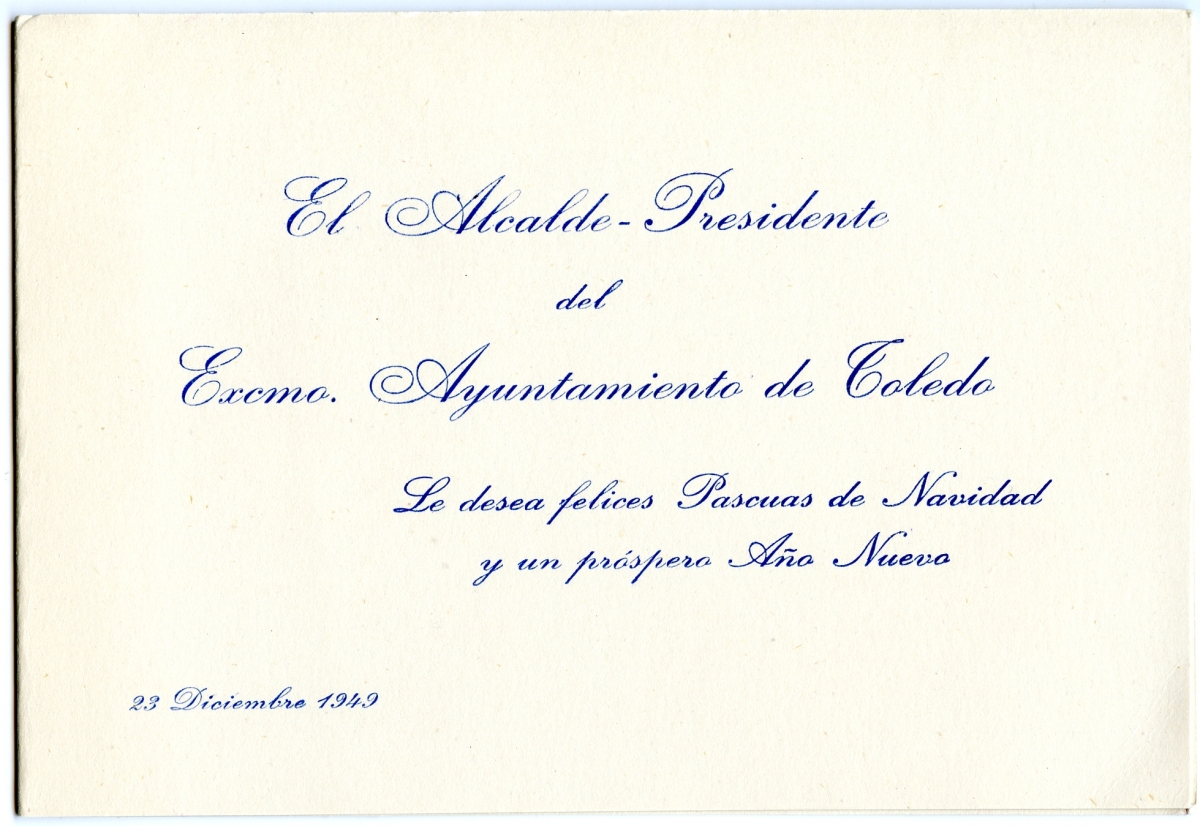 El Alcalde-Presidente
del
Excmo. Ayuntamiento de Toledo
Le desea felices Pascuas de Navidad
y un próspero Año Nuevo
23 Diciembre 1949